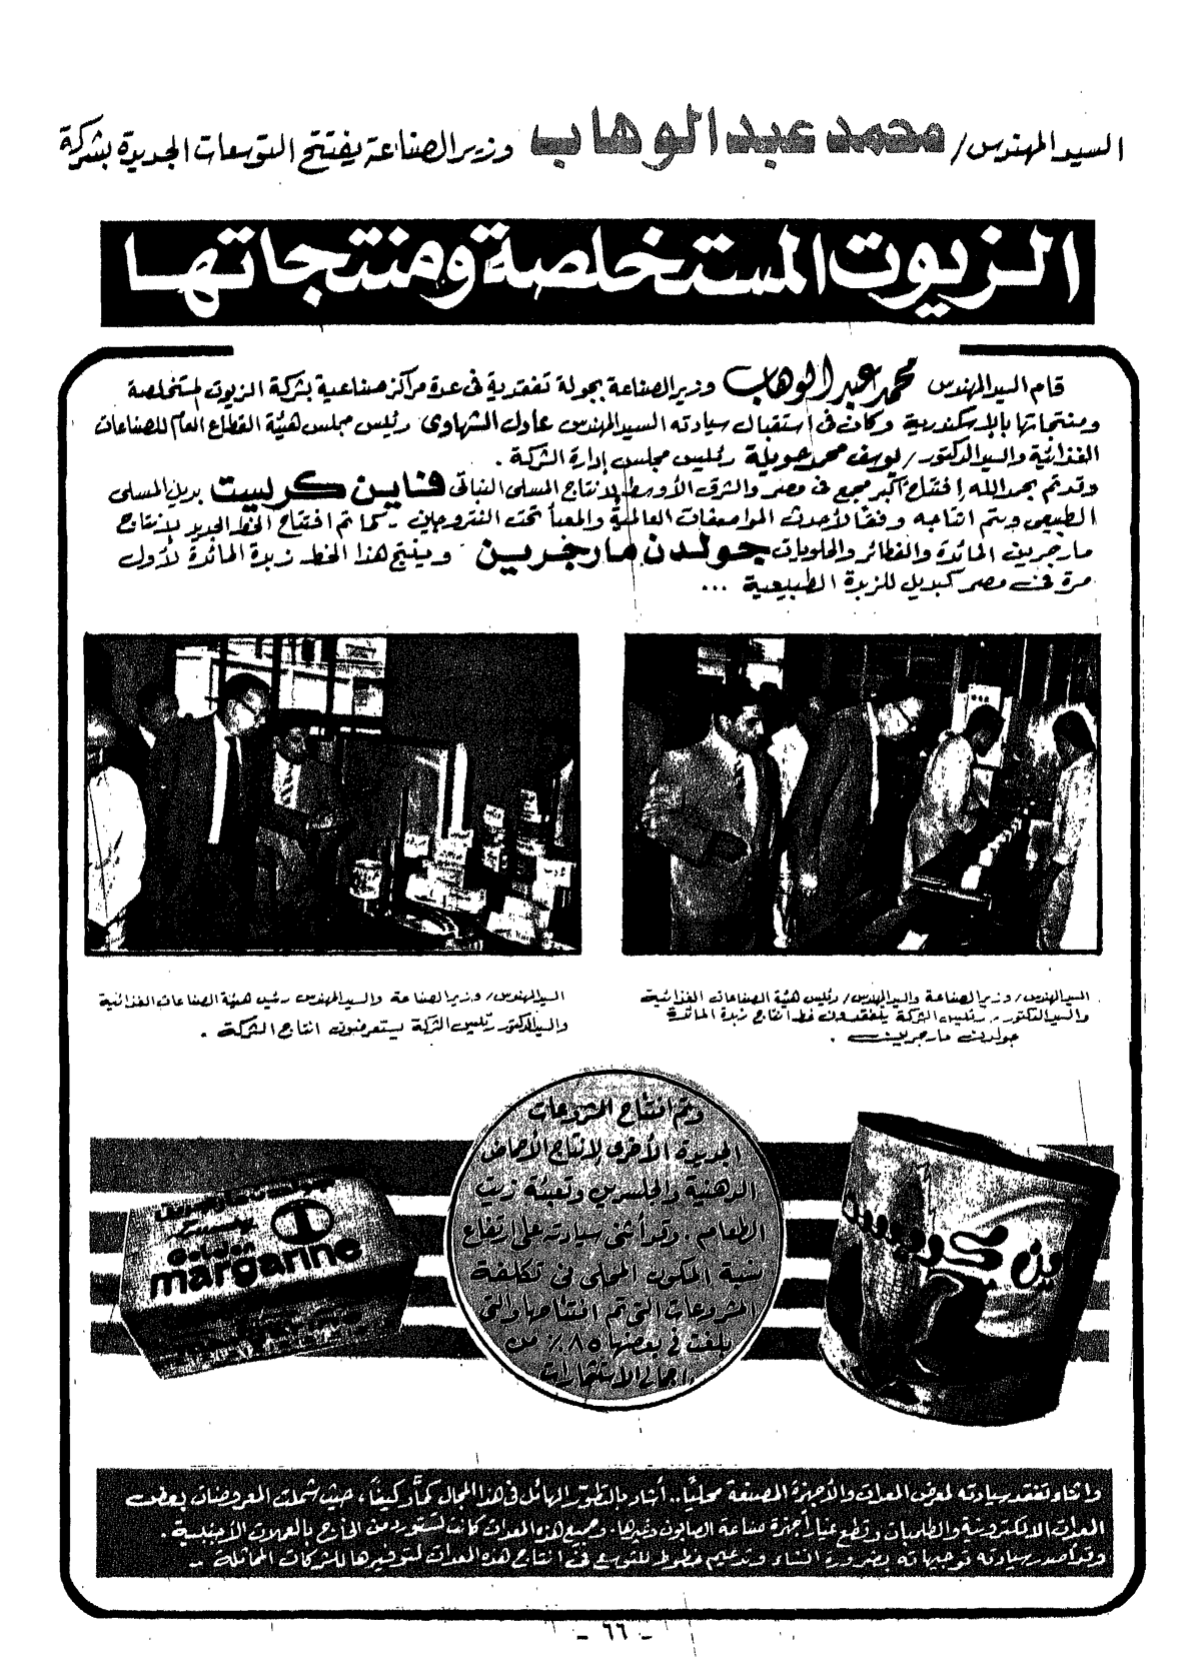 السيد المهندس/ محمد عبد الوهاب وزير الصناعة يفتتح التوسعات الجديدة بشركة
الزيوت المستخلصة ومنتجاتها
قام السيد المهندس محمد عبد الوهاب وزير الصناعة بجولة تفقدية فى عدة مراكز صناعية بشركة الزيوت المستخلصة
ومنتجاتها بالاسكندرية وكان فى استقبال سيادته السيد المهندس عادل الشهاوى رئيس مجلس هيئة القطاع العام للصناعات
الغذائية والسيد الدكتور/ يوسف محمد حويلة رئيس مجلس إدارة الشركة .
وقد تم بحمد الله إفتتاح أكبر مجمع فى مصر والشرق الأوسط لإنتاج المسلى النباتى فاين كريست بديل المسلى
الطبيعى ويتم انتاجه وفقاً لأحدث المواصفات العالمية والمعبأ تحت النتروجين - كما تم افتتاح الخط الجديد لإنتاج
مارجرين المائدة والفطائر والحلويات جولدن مارجرين وينتج هذا الخط زبدة المائدة لأول
مرة فى مصر كبديل للزبدة الطبيعية ...
السيد المهندس/ وزير الصناعة والسيد المهندس/ رئيس هيئة الصناعات الغذائية
والسيد الدكتور رئيس الشركة يتفقدون خط انتاج زبدة المائدة
جولدن مارجرين .
السيد المهندس/ وزير الصناعة والسيد المهندس رئيس هيئة الصناعات الغذائية
والسيد الدكتور رئيس الشركة يستعرضون انتاج الشركة .
وتم افتتاح المشروعات
الجديدة الأخرى لإنتاج الأحماض
الدهنية والجلسرين وتعبئة زيت
الطعام . وقد أثنى سيادته على ارتفاع
نسبة المكون المحلى فى تكلفة
المشروعات التى تم افتتاحها والتى
بلغت فى بعضها ٨٥٪ من
اجمالى الاستثمارات
Golden
margarine
كريست
واثناء تفقد سيادته لمعرض المعدات والأجهزة المصنعة محلياً .. أشاد بالتطور الهائل فى هذا المجال كماً وكيفاً، حيث شملت المعروضات بعض
المعدات الالكترونية والطلمبات وقطع غيار أجهزة صناعة الصابون وغيرها. وجميع هذه المعدات كانت تستورد من الخارج بالعملات الأجنبية .
وقد أصدر سيادته توجيهاته بضرورة انشاء وتدعيم خطوط للتوسع فى انتاج هذه المعدات لتوفيرها للشركات المماثلة ..
- ٦٦ -